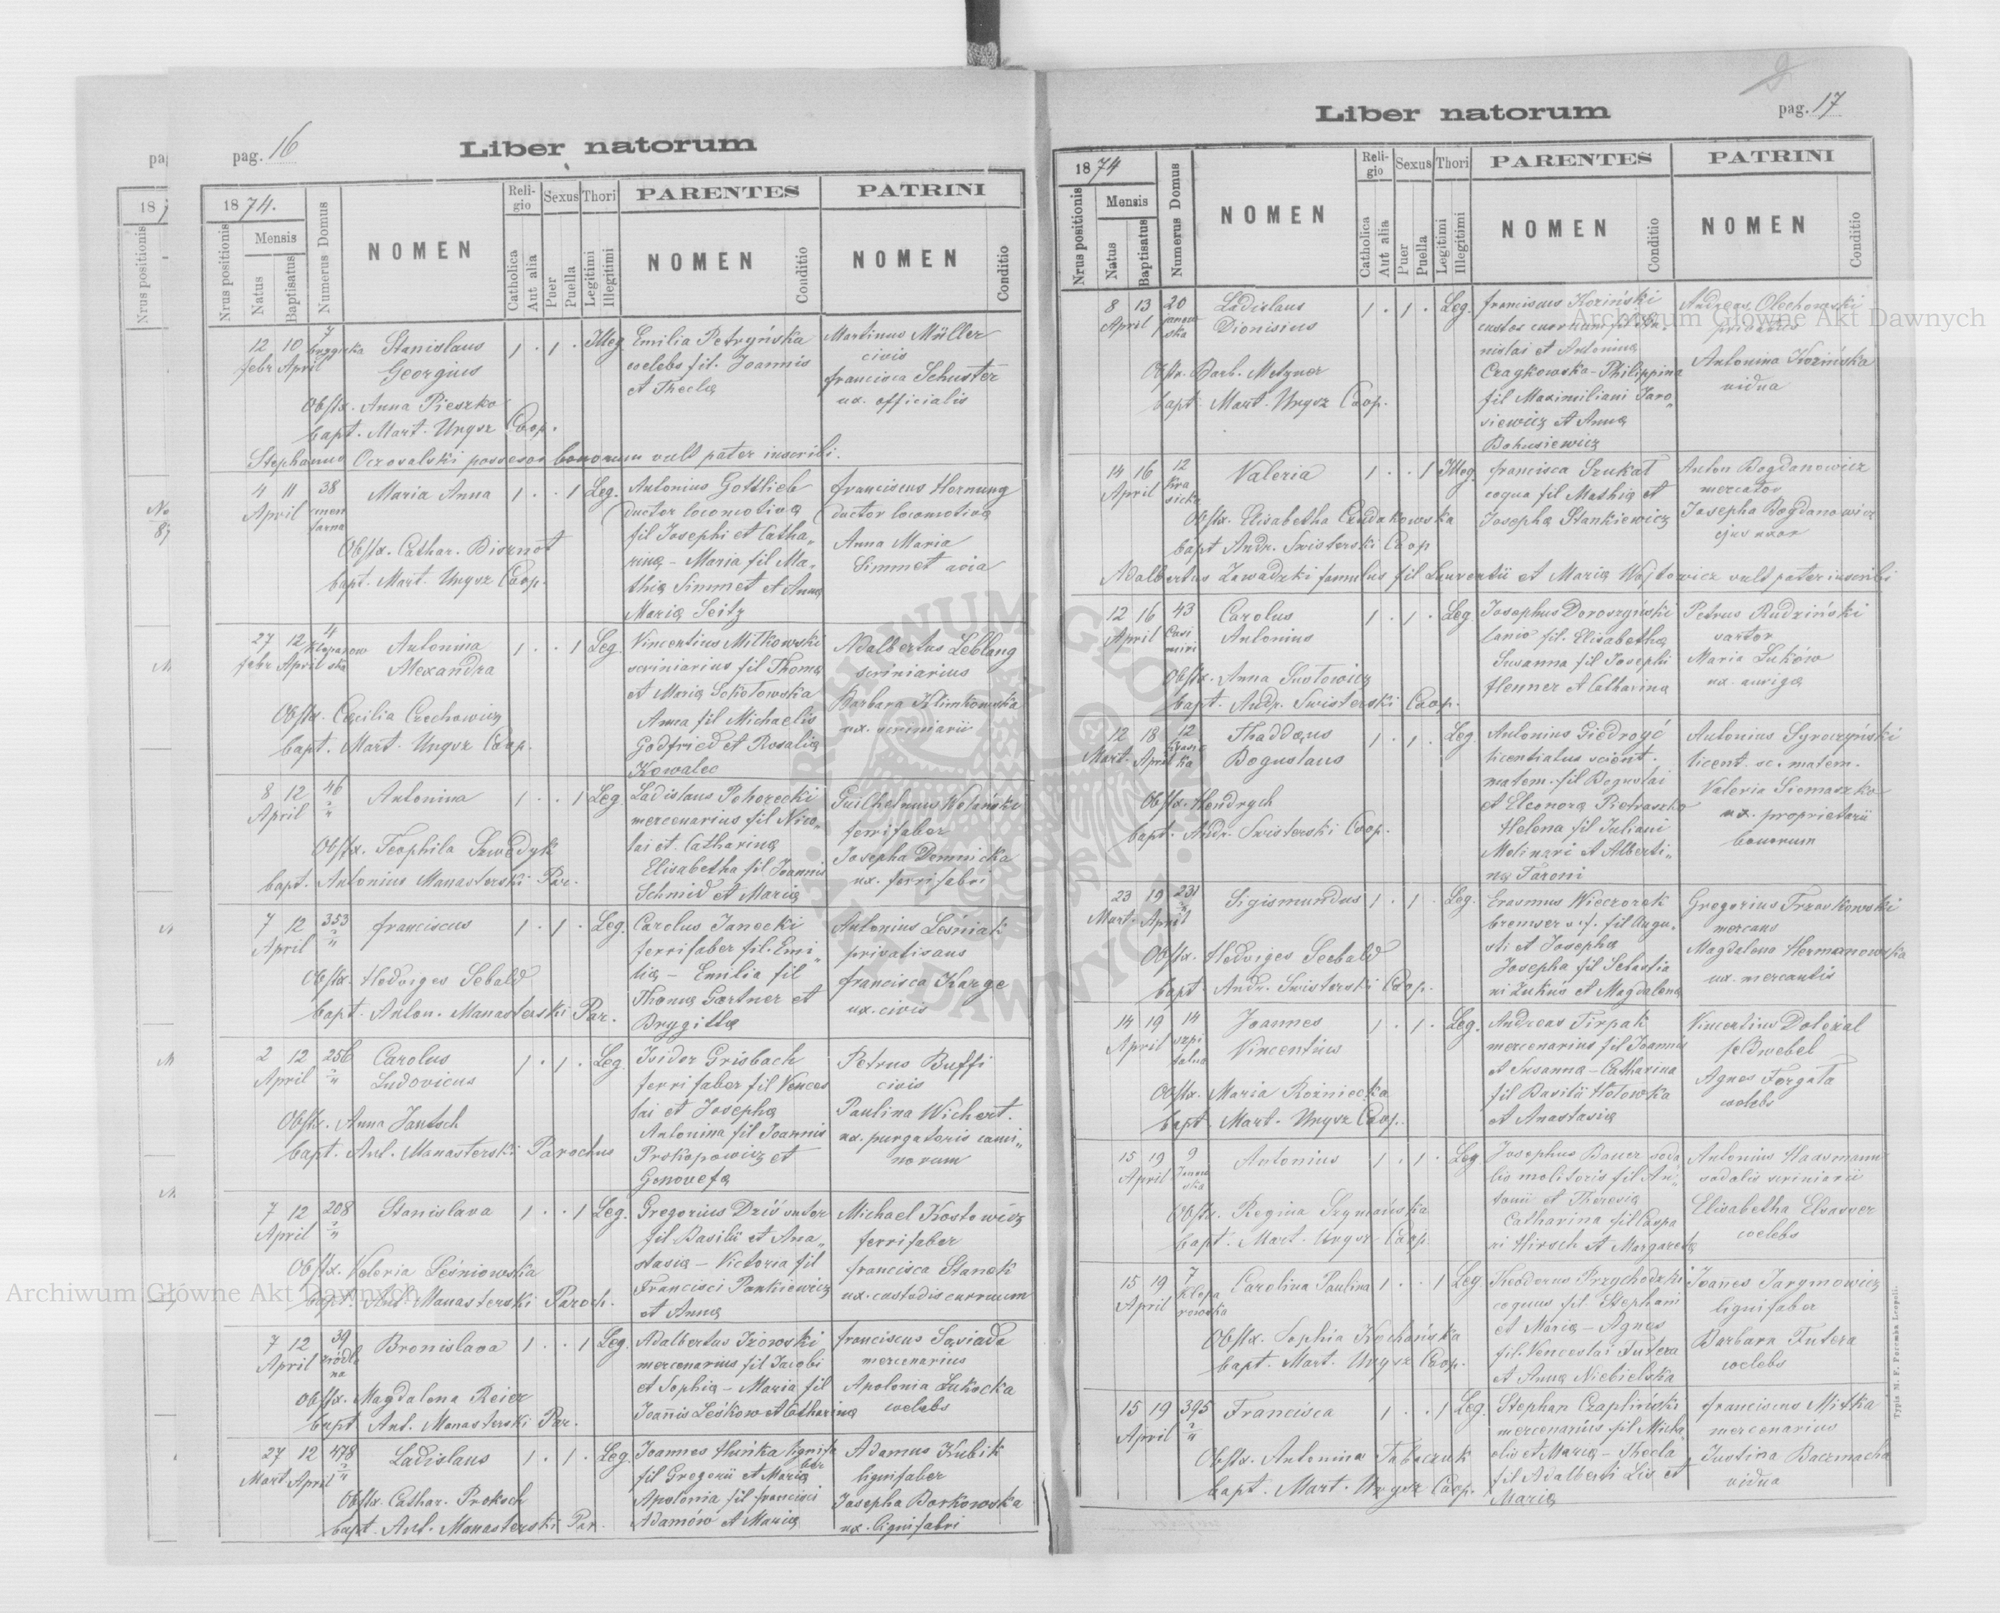 pag. 16
Liber natorum
1874.
Nrus positionis
Mensis
Natus
Baptisatus
Numerus Domus
NOMEN
Religio
Catholica
Aut alia
Sexus
Puer
Puella
Thori
Legitimi
Illegitimi
PARENTES
NOMEN
Conditio
PATRINI
NOMEN
Conditio
12 febr 10 April 7
Stanislaus
Georgius
1 . 1 . Illeg.
Obstx. Anna Pieszko
bapt. Mart. Ungvr Coop.
Emilia Petryńska
coelebs fil. Joannis
et Thecla
Martinus Müller
civis
francisca Schuster
ux. officialis
Stephanus Oczosalski possesor bonorum vult pater inscribi.
4 11 April 38
Maria Anna
1 . . 1 Leg.
Obstx. Cathar. Bisznot
bapt. Mart. Ungvr Coop.
Antonius Gottlieb
ductor locomotivæ
fil Josephi et Catha-
rina – Maria fil Ma-
thia Simmet et Anna
Maria Seitz
franciscus Hornung
ductor locomotivæ
Anna Maria
Simmet avia
27 febr 12 April 4
Antonina
Alexandra
1 . . 1 Leg.
Obstx. Cæcilia Czechowicz
bapt. Mart. Ungvr Coop.
Vincentius Mitkowski
scriniarius fil Thoma
et Maria Sokołowska
Anna fil Michaelis
Godfried et Rosalia
Kowalec
Adalbertus Leblang
scriniarius
Barbara Klimkowska
ux. scriniarii
8 12 April 46
Antonina
1 . . 1 Leg.
Obstx. Teophila Szwedyk
bapt. Antonius Manasterski Par.
Ladislaus Pohorecki
mercenarius fil Nico-
lai et Catharina
Elisabetha fil Joannis
Schmid et Maria
Guilhelmus Woliński
ferrifaber
Josepha Domnicka
ux. ferrifabri
7 12 April 353
franciscus
1 . 1 . Leg.
Obstx. Hedviges Sebald
bapt. Anton. Manasterski Par.
Carolus Janecki
ferrifaber fil. Emi-
lia – Emilia fil
Thoma Gærtner et
Brygitta
Antonius Leśniak
privatisans
francisca Karge
ux. civis
2 12 April 256
Carolus
Ludovicus
1 . 1 . Leg.
Obstx. Anna Jantsch
bapt. Ant. Manasterski Parochus
Isidor Grisbach
ferrifaber fil Vences
lai et Josepha
Antonina fil Joannis
Prokopowicz et
Genovefa
Petrus Buffi
civis
Paulina Wichert
ux. purgatoris cami-
norum
7 12 April 208
Stanislava
1 . . 1 Leg.
Obstx. Valeria Leśniowska
bapt. Ant. Manasterski Paroch.
Gregorius Dziś sutor
fil Basilii et Ana-
stasia – Victoria fil
Francisci Pankiewicz
et Anna
Michael Kostowicz
ferrifaber
francisca Stanek
ux. custodis curruum
7 12 April 39
Bronislava
1 . . 1 Leg.
Obstx. Magdalena Reier
bapt Ant. Manasterski Par.
Adalbertus Izowski
mercenarius fil Jacobi
et Sophia – Maria fil
Joannis Leśkow et Catharina
franciscus Sawiada
mercenarius
Apolonia Łukocka
coelebs
27 Mart 12 April 478
Ladislaus
1 . 1 . Leg.
Obstx. Cathar. Proksch
bapt. Ant. Manasterski Par.
Joannes Huńka lignifa
ber
fil Gregorii et Maria
Apolonia fil francisci
Adamów et Maria
Adamus Kubik
lignifaber
Josepha Borkowska
ux. lignifabri
pag. 17
Liber natorum
1874
Nrus positionis
Mensis
Natus
Baptisatus
Numerus Domus
NOMEN
Religio
Catholica
Aut alia
Sexus
Puer
Puella
Thori
Legitimi
Illegitimi
PARENTES
NOMEN
Conditio
PATRINI
NOMEN
Conditio
8 13 April 20 janow ska
Ladislaus
Dionisius
1 . 1 . Leg.
Obstx. Barb. Metzner
bapt. Mart. Ungvr Coop.
franciscus Koziński
custos curruum fil Sta-
nislai et Antonina
Czajkowska – Philippina
fil Maximiliani Jaro-
siewicz et Anna
Bohusiewicz
Andreas Olechowski
privatus
Antonina Kozińska
vidua
14 16 April 12 Kra sicka
Valeria
1 . . 1 Illeg.
Obstx. Elisabetha Czudakowska
bapt Andr. Swisterski Coop
francisca Szukat
coqua fil Mathia et
Josepha Stankiewicz
Anton Bogdanowicz
mercator
Josepha Bogdanowicz
ejus uxor
Adalbertus Zawadzki famulus fil Laurentii et Maria Wojtowicz vult pater inscribi
12 16 April 43 Casi miri
Carolus
Antonius
1 . 1 . Leg.
Obstx. Anna Sustowicz
bapt. Andr. Swisterski Coop.
Josephus Doroszyński
lanio fil. Elisabetha
Susanna fil Josephi
Henner et Catharina
Petrus Rudziński
sartor
Maria Luków
ux. auriga
12 Mart. 18 April 12
Thaddæus
Boguslaus
1 . 1 . Leg.
Obstx. Hendrych
bapt. Andr. Swisterski Coop.
Antonius Giedroyć
licentiatus scient.
matem. fil Boguslai
et Eleonora Pietraszko
Helena fil Juliani
Molinari et Alberti-
na Faroni
Antonius Syroczyński
licent. sc. matem.
Valeria Siemaszko
ux. proprietarii
bonorum
23 Mart. 19 April 231
Sigismundus
1 . 1 . Leg.
Obstx. Hedviges Seebald
bapt Andr. Swisterski Coop.
Erasmus Wieczorek
bremser v. f. fil Augu-
sti et Josepha
Josepha fil Sebastia
ni Lukuś et Magdalena
Gregorius Traskowski
mercans
Magdalena Hermanowska
ux. mercantis
14 19 April 14 szpi talna
Joannes
Vincentius
1 . 1 . Leg.
Obstx. Maria Rożniecka
bapt. Mart. Ungvr Coop.
Andreas Tirpak
mercenarius fil Joannis
et Susanna – Catharina
fil Basilii Hołowka
et Anastasia
Vincentius Doleżal
feldwebel
Agnes Forgata
coelebs
15 19 April 9 Janow ska
Antonius
1 . 1 . Leg.
Obstx. Regina Szymańska
bapt. Mart. Ungvr Coop
Josephus Bauer soda
lis molitoris fil An-
tonii et Theresia
Catharina fil Caspa
ri Hirsch et Margareta
Antonius Haasmann
sodalis scriniarii
Elisabetha Elsasser
coelebs
15 19 April 7 klepa rowska
Carolina Paulina
1 . . 1 Leg.
Obstx. Sophia Kochańska
bapt. Mart. Ungvr Coop.
Theodorus Przychodzki
coquus fil Stephani
et Maria – Agnes
fil. Venceslai Futera
et Anna Niebielska
Joanes Jarymowicz
lignifaber
Barbara Futera
coelebs
15 19 April 395
Francisca
1 . . 1 Leg.
Obstx. Antonina Tabaczuk
bapt. Mart. Ungvr Coop.
Stephan Czapliński
mercenarius fil Micha
elis et Maria – Thecla
fil Adalberti Lis et
Maria
franciscus Mitka
mercenarius
Justina Baczmacha
vidua
Typis M. F. Poremba Leopoli.
Archiwum Główne Akt Dawnych
Archiwum Główne Akt Dawnych
ARCHIWUM GŁÓWNE AKT DAWNYCH